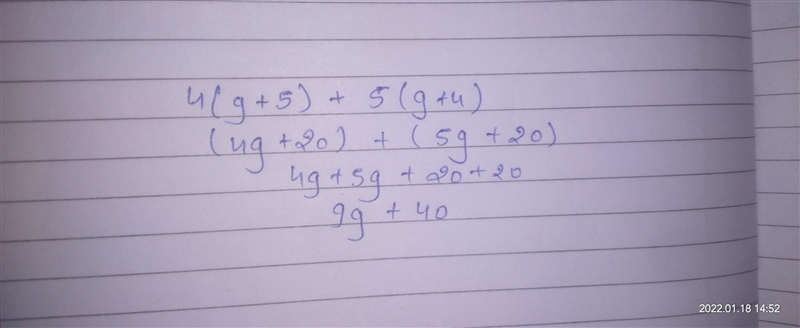 4(g+5) + 5(g+4)
(4g+20) + (5g+20)
4g+5g+20+20
9g+40
2022.01.18 14:52